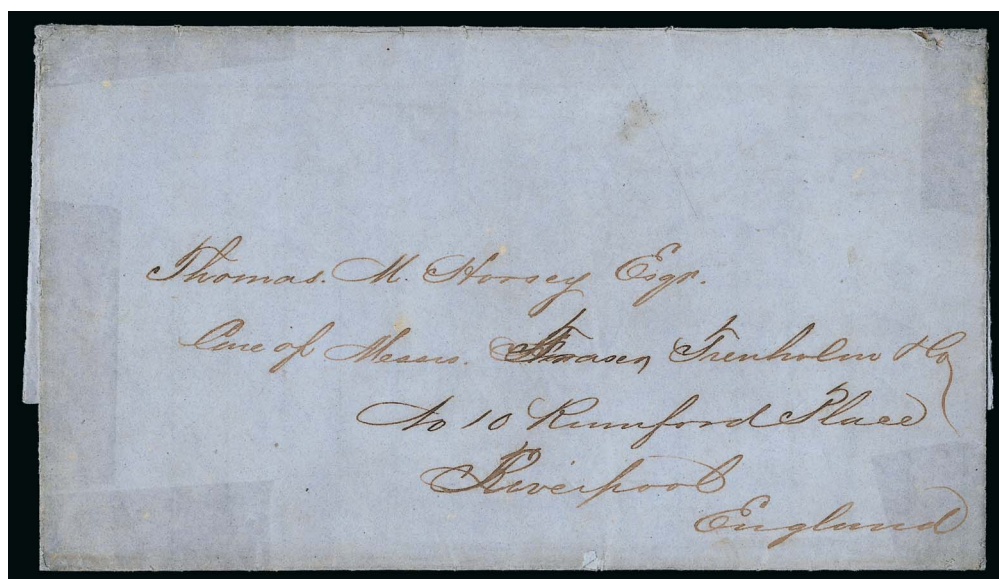 Thomas. M. Horsey Esqr.
Care of Messrs. Fraser, Trenholm & Co
No 10 Rumford Place
Liverpool
England